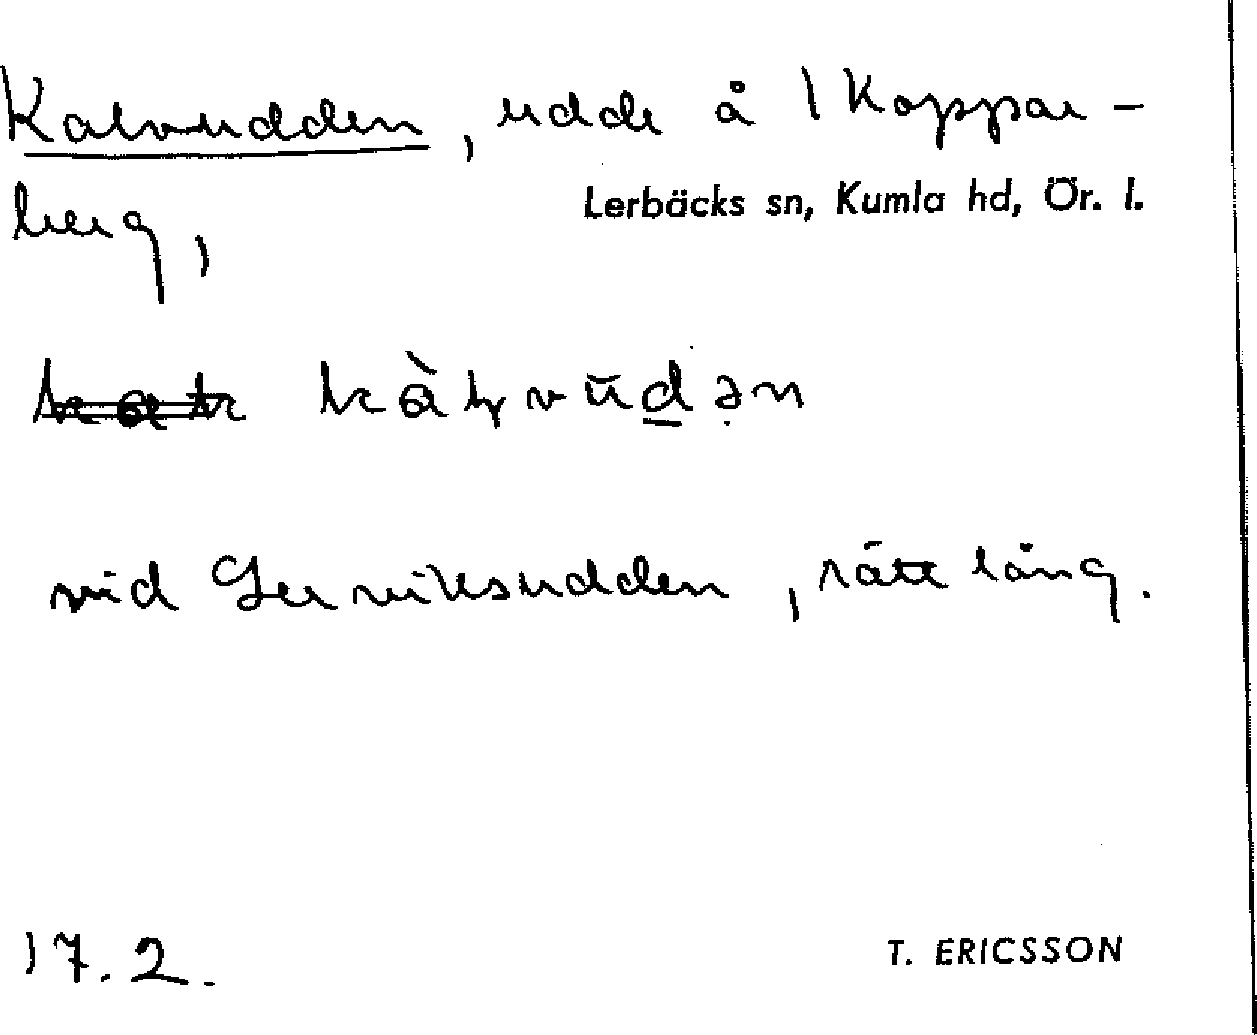 Kalvudden, udde å 1 Koppar-
berg,
Lerbäcks sn, Kumla hd, Ör. l.
vid Lerviksudden, rätt lång.
17.2.
T. ERICSSON